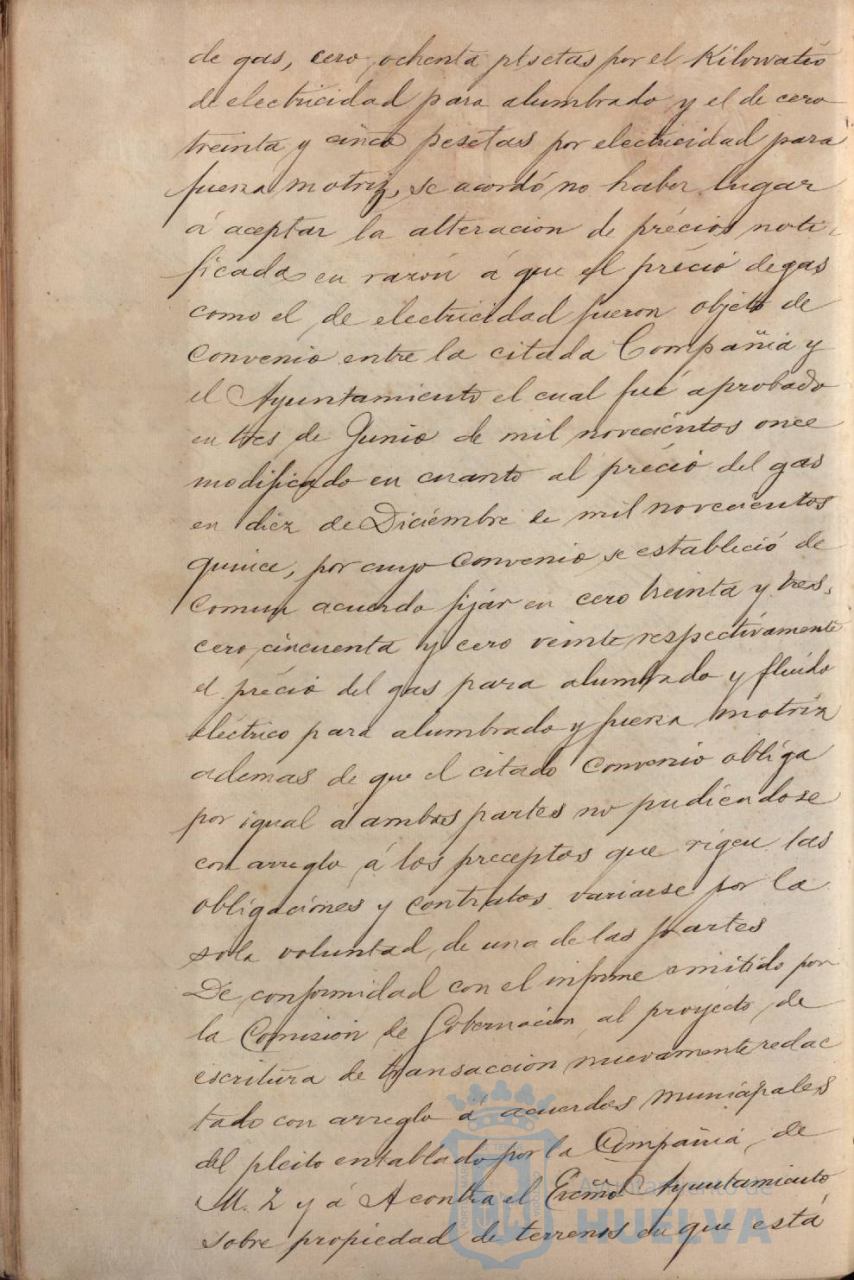 de gas, cero, ochenta pesetas por el Kilowatio
de electricidad para alumbrado y el de cero
treinta y cinco pesetas por electricidad para
fuerza motriz, se acordó no haber lugar
á aceptar la alteracion de précios noti-
ficada en razón á que el précio de gas
como el de electricidad fueron objeto de
Convenio entre la citada Compañia y
el Ayuntamiento el cual fué aprobado
en tres de Junio de mil novecientos once
modificado en cuanto al précio del gas
en diez de Diciembre de mil novecientos
quince, por cuyo Convenio se estableció de
comun acuerdo fijar en cero treinta y tres,
cero, cincuenta y cero veinte, respectivamente
el précio del gas para alumbrado y fluido
eléctrico para alumbrado y fuerza motriz
ademas de que el citado Convenio obliga
por igual á ambas partes no pudiendose
con arreglo á los preceptos que rigen las
obligaciones y contratos variarse por la
sola voluntad de una de las partes
De conformidad con el informe emitido por
la Comision de Gobernacion al proyecto de
escritura de transaccion nuevamente redac
tado con arreglo á acuerdos municipales
del pleito entablado por la Compañia de
M. Z y á A contra el Excmo Ayuntamiento
sobre propiedad de terrenos en que está
Ayuntamiento de
HUELVA